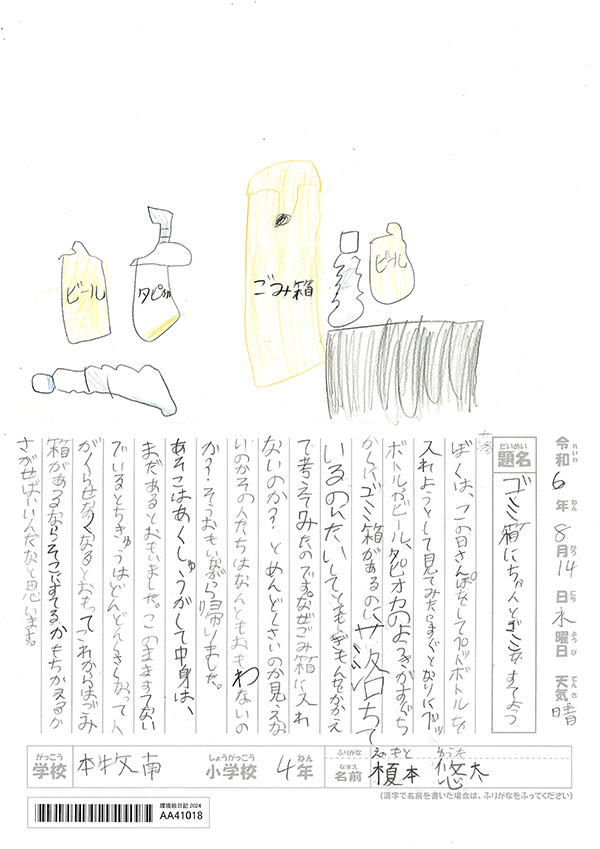 ビール
タピオカ
ごみ箱
ビール
令和6年8月14日水曜日 天気 晴
れいわ ねん がつ にち ようび てんき
だいめい
題名
ゴミ箱にちゃんと
すてよう
ぼくは、この日さんぽをしてペットボトルを
入れようとして見てみたらすぐとなりにペッ
ボトルやビール、タピオカのようきがすぐち
かくにゴミ箱があるのに落ちて
いるのにたいしてとてもぎもんをかかえ
て考えてみたのです。なぜごみ箱に入れ
ないのか?とめんどくさいのか見えな
いのかその人たちはなんともおもわないの
か?そうおもいながら帰りました。
あそこはあくしゅうがして中身は、
まだあるとおもいました。このまますてない
でいるとちきゅうはどんどん
くさくなって人
がくらせなくなるとおもってこれからはごみ
箱があるならそこにすてるかもちかえるか
さがせばいいんだなと思います。
がっこう
学校
本牧南
しょうがっこう
小学校
4年
ねん
ふりがな
えのもと ゆうた
なまえ
名前
榎本 悠太
(漢字で名前を書いた場合は、ふりがなをふってください)
環境絵日記 2024
AA41018